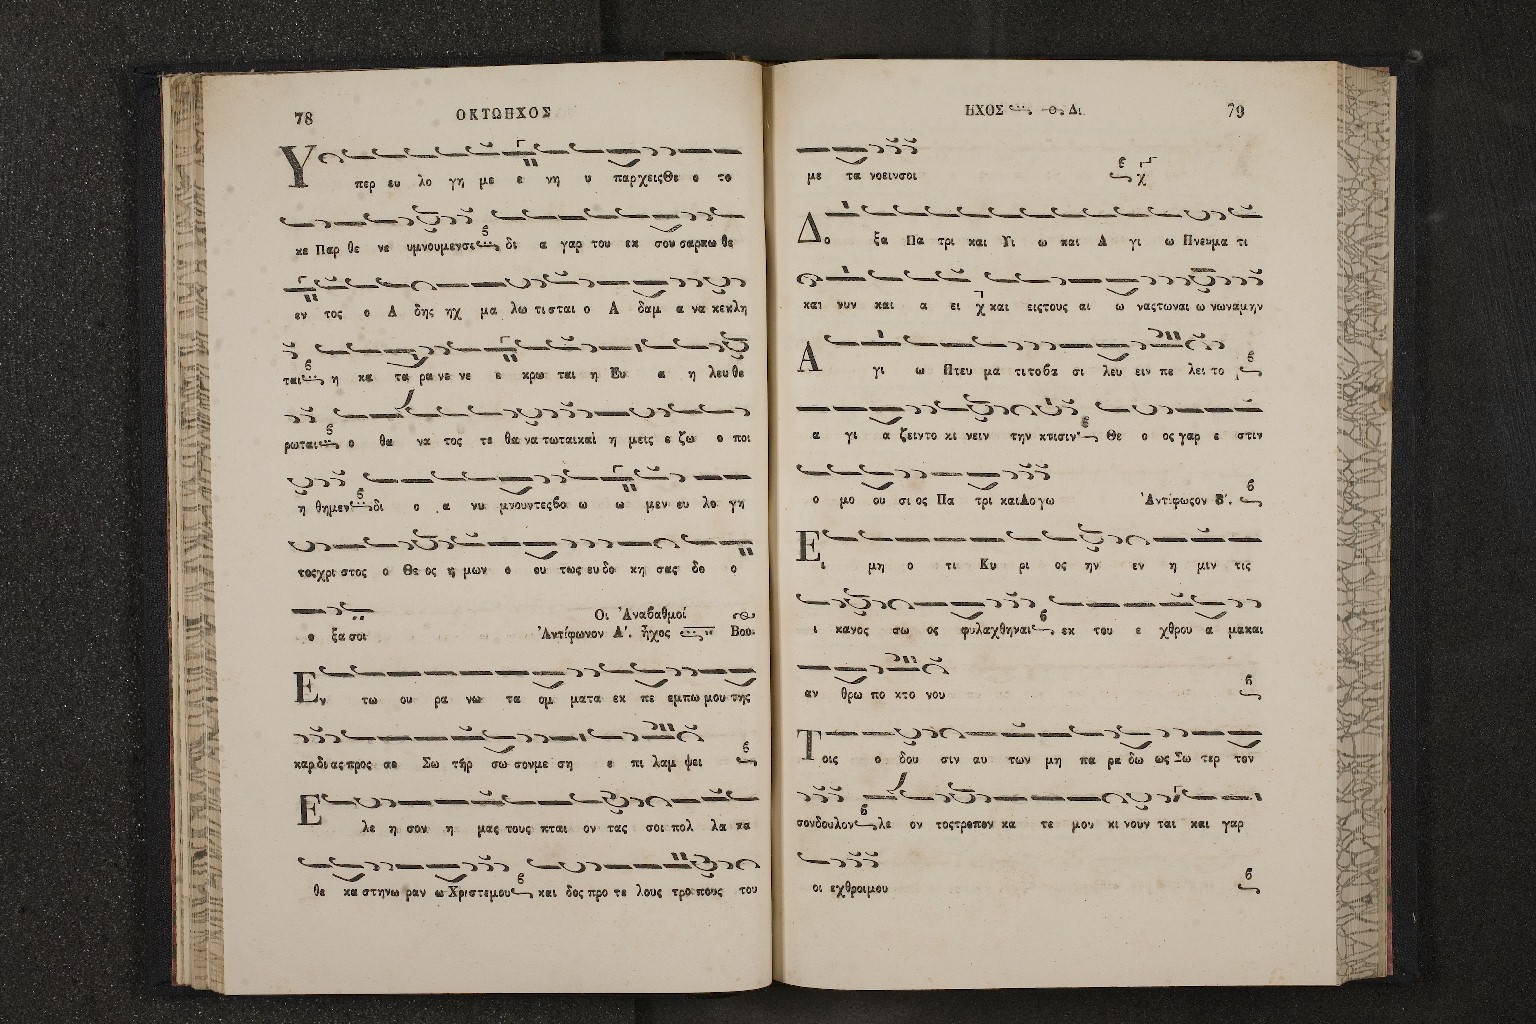 78 ΟΚΤΩΗΧΟΣ
Υ περ ευ λο γη με ε νη υ παρχειςΘε ο το
κε Παρ θε νε υμνουμενσε δι α γαρ του εκ σου σαρκω θε
εν τος ο Α δης ηχ μα λω τισται ο Α δαμ α να κεκλη
ται η κα τα ρα νε νε ε κρω ται η Ευ α η λευθε
ρωται ο θα να τος τε θα να τωταικαὶ η μεις ε ζω ο ποι
η θημεν δι ο α νυ μνουντεςβο ω ω μεν ευ λο γη
τοςχρι στος ο Θε ος η μων ο ου τως ευ δο κη σας δο ο
ο ξα σοι
Οι Ἀναβαθμοί
Ἀντίφωνον Α΄. ἦχος Βου.
Εν τω ου ρα νω τα ομ ματα εκ πε εμπω μου της
καρδι ας προς σε Σω τῆρ σω σονμε ση ε πι λαμ ψει
Ε λε η σον η μας τους πται ον τας σοι πολ λα κα
θε κα στηνω ραν ω Χριστεμου και δος προ τε λους τρο πους του
ΗΧΟΣ Ο Δι 79
με τα νοεινσοι
Δο ξα Πα τρι και Υι ω και Α γι ω Πνευμα τι
και νυν και α ει χ και ειςτους αι ω ναςτωναι ω νωναμην
Α γι ω Πτευ μα τι τοβα σι λευ ειν πε λει το
α γι α ζειντο κι νειν την κτισιν Θε ο ος γαρ ε στιν
ο μο ου σι ος Πα τρι καιΛογω Ἀντίφωνον Β΄.
Ει μη ο τι Κυ ρι ος ην εν η μιν τις
ι κανος σω ος φυλαχθηναι εκ του ε χθρου α μακαι
αν θρω πο κτο νου
Τοις ο δου σιν αυ των μη πα ρα δω ως Σω τερ τον
σονδουλον λε ον τοςτροπον κα τε μου κι νουν ται και γαρ
οι εχθροιμου